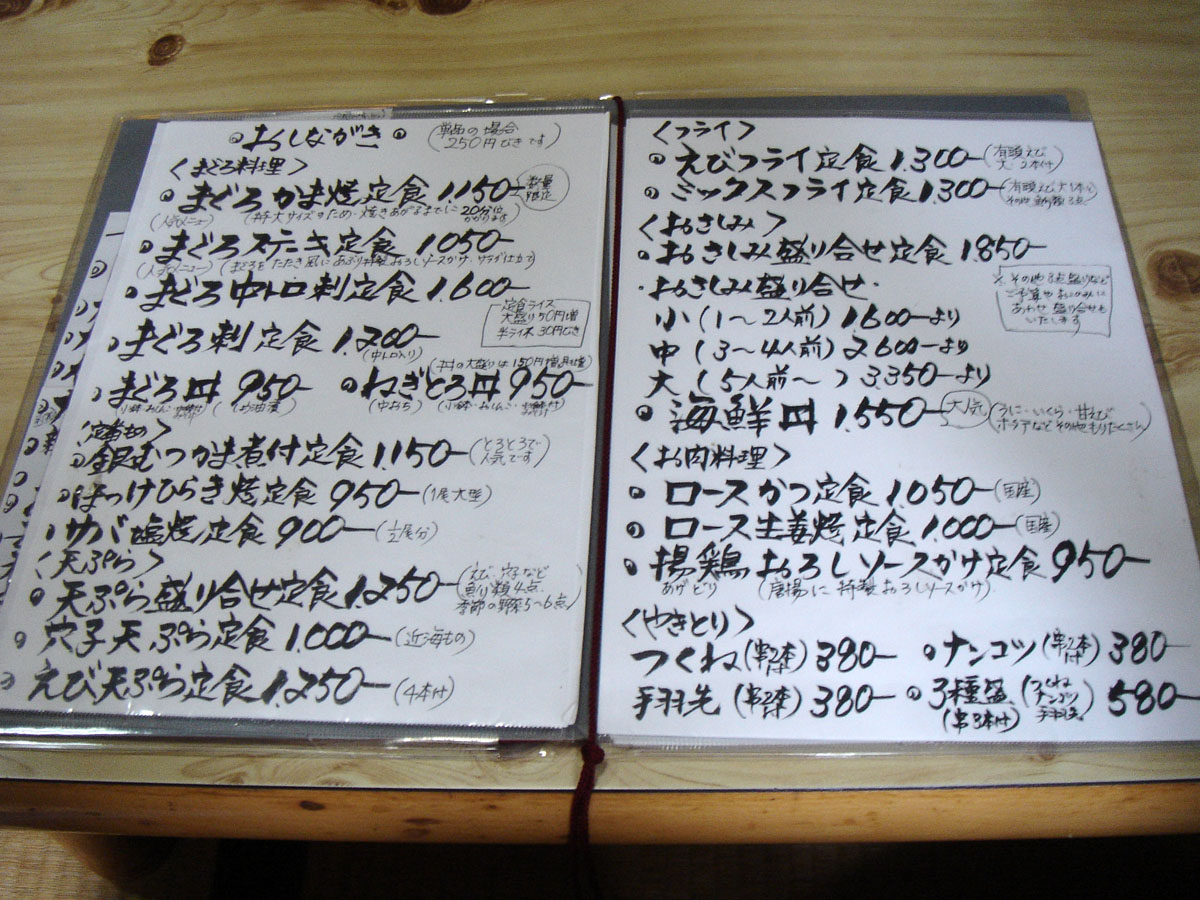 おしながき
(単品の場合
250円びきです)
〈まぐろ料理〉
まぐろかま焼定食 1.150- 数量
限定
(人気メニュー) (特大サイズのため・焼きあがるまでに20分位
かかります)
まぐろステーキ定食 1.050-
(人気メニュー) (まぐろをたたき風にあぶり特製おろしソースかけ・サラダ仕立て)
まぐろ中トロ刺定食 1.600-
定食ライス
大盛り50円増
半ライス 30円びき
まぐろ刺定食 1.200-
(中トロ入り)
(丼の大盛りは150円増具も増)
まぐろ丼 950- ねぎとろ丼 950-
(中おち)
(定番もの)
銀むつかま煮付定食 1.150- (とろとろで
人気です)
ほっけひらき焼定食 950- (1尾大型)
サバ塩焼定食 900- (1/2尾分)
〈天ぷら〉
天ぷら盛り合せ定食 1.250- (えび、穴子など
魚り類4点
季節の野菜5〜6点)
穴子天ぷら定食 1.000- (近海もの)
えび天ぷら定食 1.250- (4本付)
〈フライ〉
えびフライ定食 1.300- (有頭えび
大 2本付)
ミックスフライ定食 1.300- (有頭えび大1本と
その他 3点)
〈おさしみ〉
おさしみ盛り合せ定食 1.850-
・おさしみ盛り合せ・
※その他 3点盛りなど
ご予算やおこのみに
あわせ 盛り合せも
いたします
小 (1〜2人前) 1.600-より
中 (3〜4人前) 2.600-より
大 (5人前〜 ) 3.350-より
海鮮丼 1.550- 大人気 (うに・いくら・甘えび
ホタテなどその他もりたくさん)
〈お肉料理〉
ロースかつ定食 1.050- (国産)
ロース生姜焼定食 1.000- (国産)
揚鶏おろしソースかけ定食 950-
あげどり (唐揚に特製おろしソースかけ)
〈やきとり〉
つくね (串2本付) 380- ナンコツ (串2本付) 380-
手羽先 (串2本) 380- 3種盛 (つくね
ナンコツ
手羽先) 580-
(串3本付)